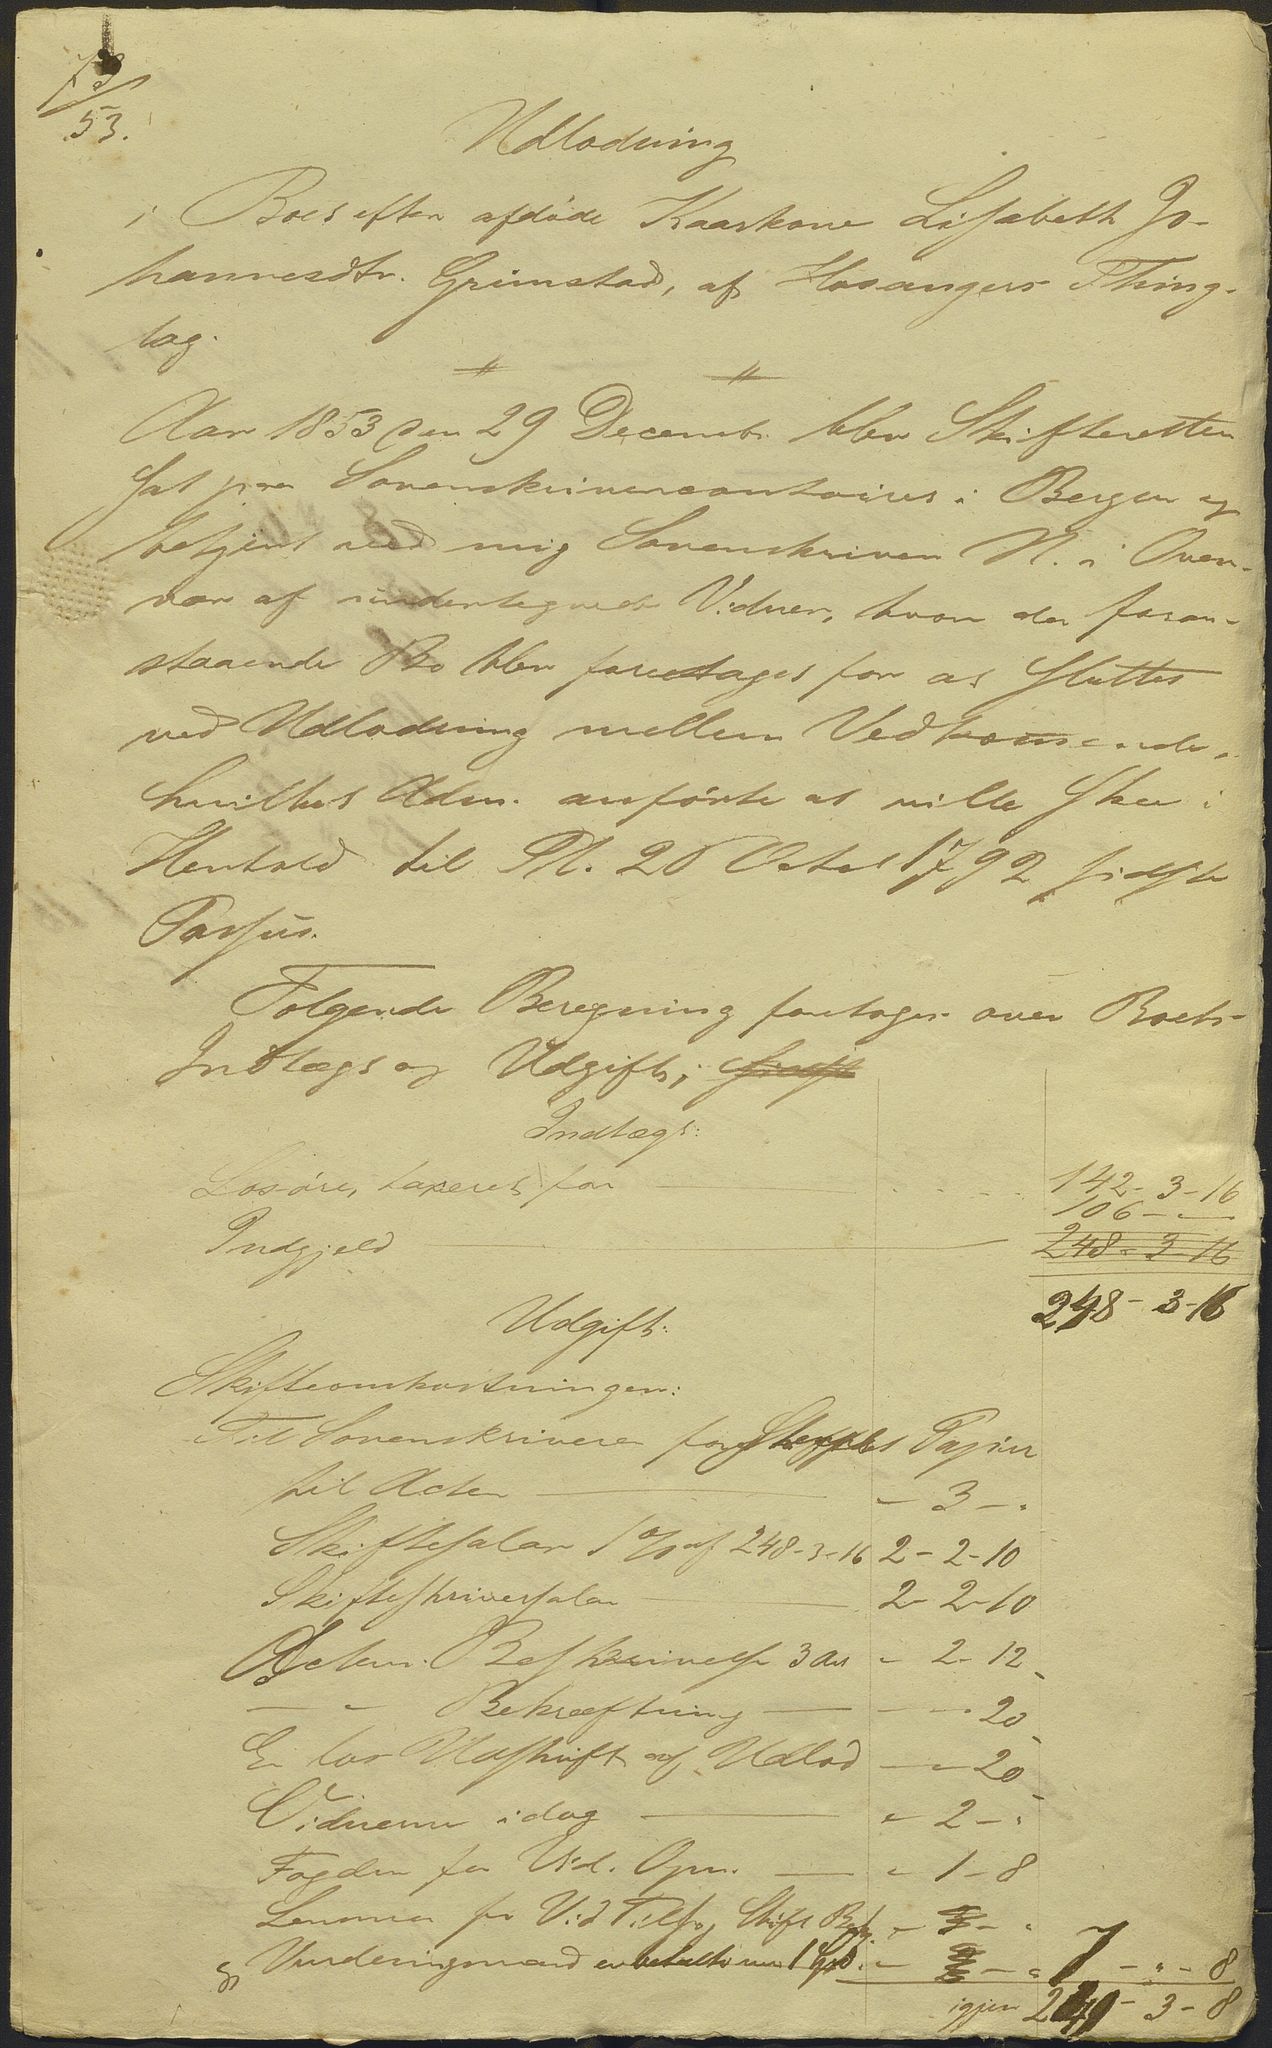 73
53.
Udlodning
i Boet efter afdöde Kaarkone Lisabeth Jo-
hannesdtr. Grimstad, af Hosangers Thing-
lag.
Aar 1853 den 29 Decembr. blev Skifteretten
sat paa Sorenskrivercontoiret i Bergen og
betjent ved mig Sorenskriver N. i Over-
vær af undertegnede Vidner, hvor da foran-
staaende Bo blev foretaget for at sluttes
ved Udlodning mellem Vedkommende,
hvilket Adm. anförte at ville skee i
Henhold til Pl. 26 Octob 1792 sidste
Passus.
Fölgende Beregning foretoges over Boets
Indtægt og Udgift;
Indtægt:
Losöre, taxeret for 142 - 3 - 16
Indgjeld 106 - -
248 - 3 - 16
248 - 3 - 16
Udgift:
Skifteomkostninger:
Til Sorenskriveren for Stemplet Papiir
til Acten - 3 - "
Skiftesalær 1 % af 248-3-16 2 - 2 - 10
Skifteskriversalær 2 - 2 - 10
Actens Beskrivelse 3 Ark " 2 - 12
— " Bekræftning - " 20
En løs Udskrift af Udlod - " 20
Vidnerne idag " 2 - "
Fogden for Vid. Opn. " 1 - 8
Lensmand for Vid. Skift
Vurderingsmænd 7 - " - 8
igjen 241 - 3 - 8